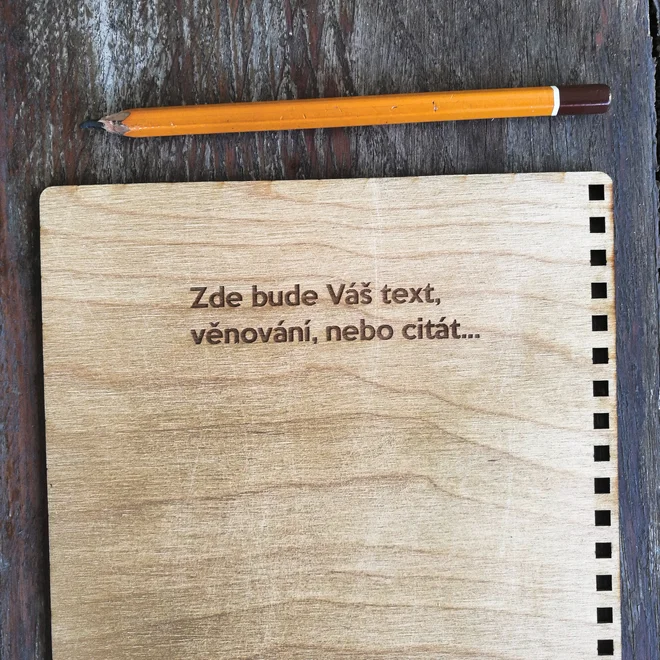 Zde bude Váš text,
věnování, nebo citát...